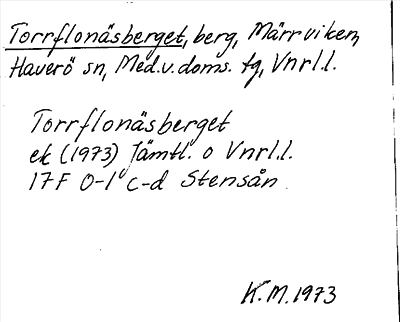 Torrflonäsberget, berg, Märrviken,
Haverö sn, Med.v.doms. tg, Vnrl.l.
Torrflonäsberget
ek (1973) Jämtl. o Vnrl.l.
17F 0-1 c-d Stensån
K.M. 1973